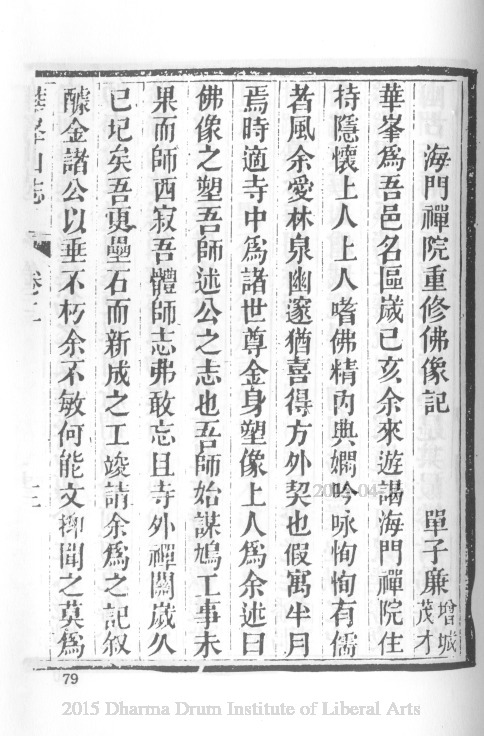 海門禪院重修佛像記 單子廉增城茂才
華峯爲吾邑名區歲己亥余來遊謁海門禪院住
持隱懷上人上人嗜佛精內典嫻吟咏恂恂有儒
者風余愛林泉幽邃猶喜得方外契也假寓半月
焉時適寺中爲諸世尊金身塑像上人爲余述曰
佛像之塑吾師述公之志也吾師始謀鳩工事未
果而師西寂吾體師志弗敢忘且寺外禪關歲久
已圮矣吾更壘石而新成之工竣請余爲之記叙
醵金諸公以垂不朽余不敏何能文稗聞之莫爲
華峯山志 卷二 三
79
2015 Dharma Drum Institute of Liberal Arts